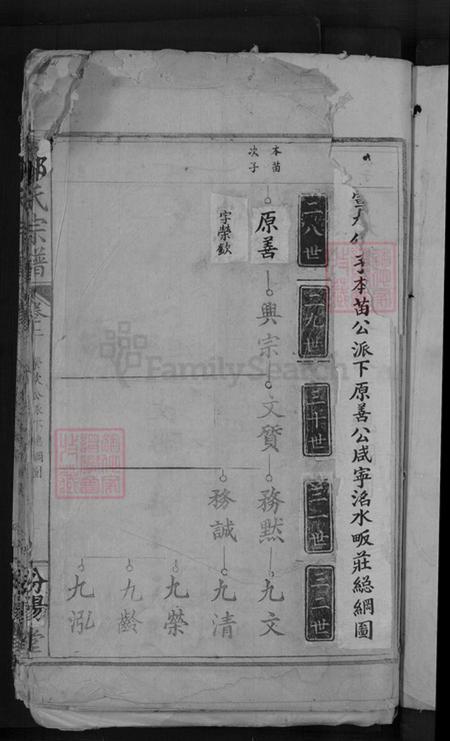 子本苗公派下原善公咸寧洺水畈莊總綱圖
二八世
二九世
三十世
三一世
三二世
本苗
次子
原善
字榮欽
興宗
文質
務默
務誠
九文
九清
九榮
九齡
九泓
氏宗譜
卷
公派下總綱圖
汾陽堂
FamilySearch